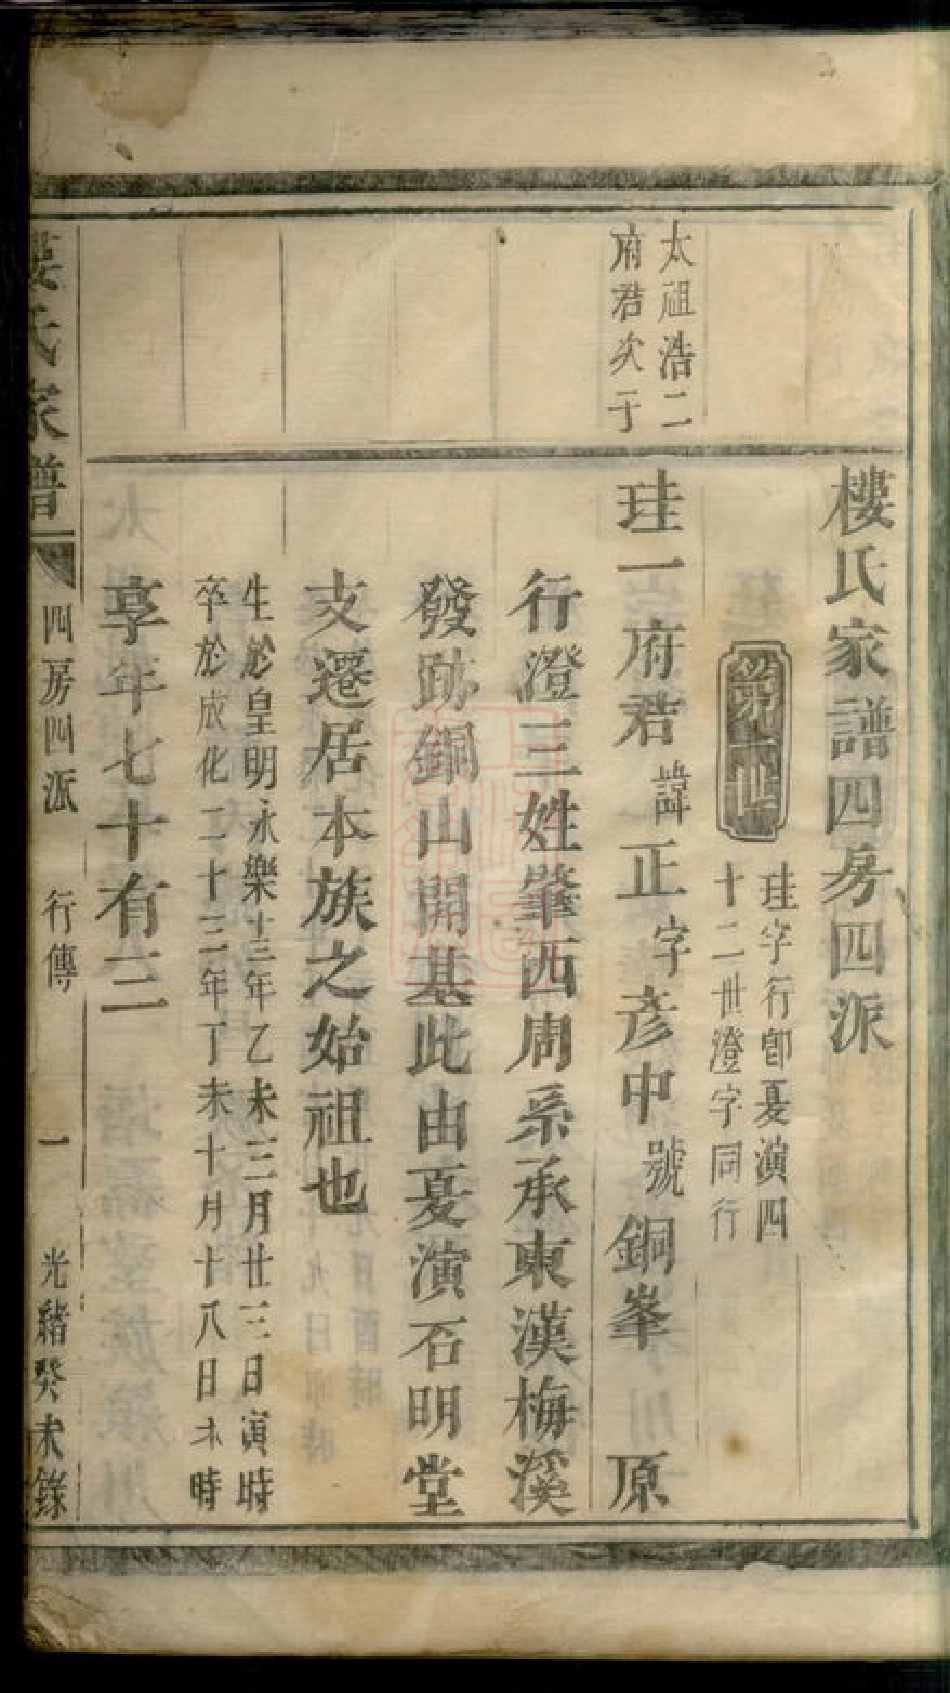 樓氏家譜四房四派
第一世
珪字行卽夏演四
十二世澄字同行
太祖浩二
府君次于
珪一府君諱正字彦中號銅峯 原
行澄三姓肇西周系承東漢梅溪
發跡銅山開基此由夏演石明堂
支遷居本族之始祖也
生於皇明永樂十三年乙未三月廿三日寅時
卒於成化二十三年丁未十月十八日未時
享年七十有三
樓氏家譜
四房四派 行傳 一 光緒癸未錄